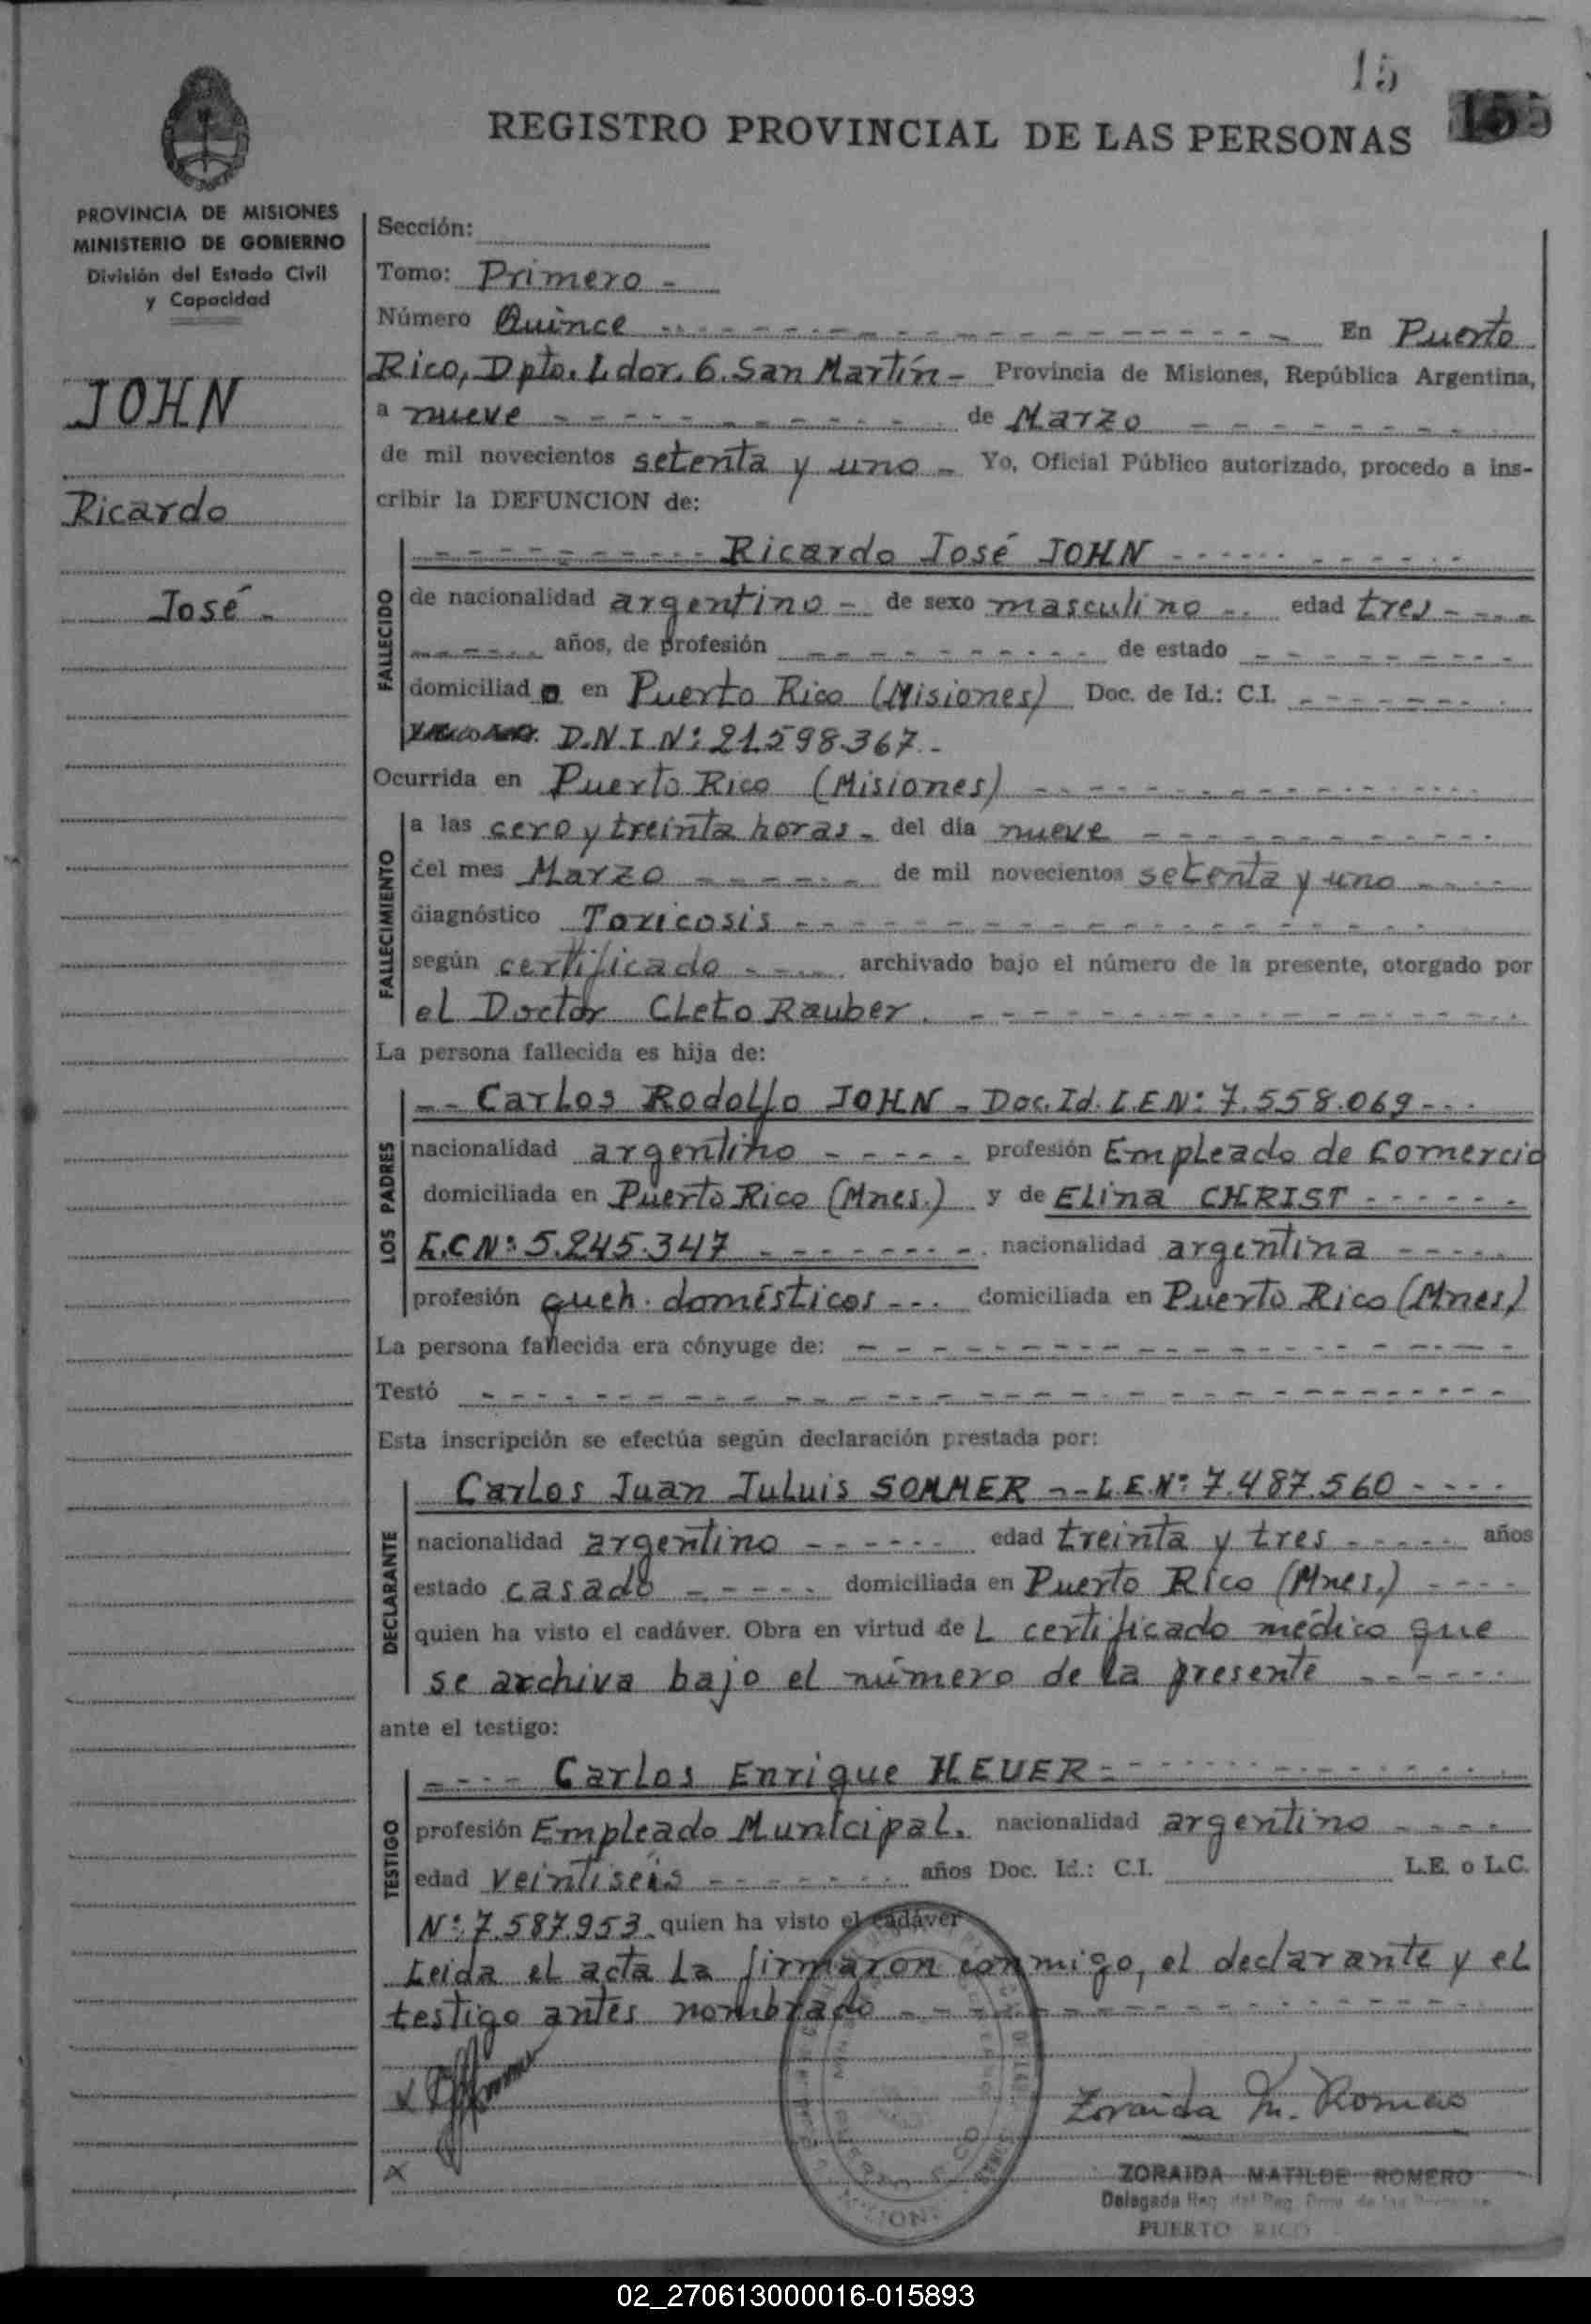 15
155
REGISTRO PROVINCIAL DE LAS PERSONAS
PROVINCIA DE MISIONES
MINISTERIO DE GOBIERNO
División del Estado Civil
y Capacidad
JOHN
Ricardo
José -
Sección:
Tomo: Primero -
Número Quince En Puerto
Rico, Dpto. L dor. G. San Martín - Provincia de Misiones, República Argentina,
a nueve de Marzo
de mil novecientos setenta y uno - Yo, Oficial Público autorizado, procedo a ins-
cribir la DEFUNCION de:
FALLECIDO
Ricardo José JOHN
de nacionalidad argentino - de sexo masculino - edad tres
años, de profesión de estado
domiciliado en Puerto Rico (Misiones) Doc. de Id.: C.I.
D.N.I.Nº: 21.598.367.-
Ocurrida en Puerto Rico (Misiones)
FALLECIMIENTO
a las cero y treinta horas - del día nueve
del mes Marzo de mil novecientos setenta y uno
diagnóstico Toxicosis
según certificado archivado bajo el número de la presente, otorgado por
el Doctor Cleto Rauber.
La persona fallecida es hija de:
LOS PADRES
Carlos Rodolfo JOHN - Doc. Id. L.E.Nº: 7.558.069
nacionalidad argentino profesión Empleado de Comercio
domiciliada en Puerto Rico (Mnes.) y de Elina CHRIST
L.C Nº: 5.245.347 nacionalidad argentina
profesión queh. domésticos domiciliada en Puerto Rico (Mnes)
La persona fallecida era cónyuge de:
Testó
Esta inscripción se efectúa según declaración prestada por:
DECLARANTE
Carlos Juan Juluis SOMMER -- L.E.Nº: 7.487.560
nacionalidad argentino edad treinta y tres años
estado casado domiciliada en Puerto Rico (Mnes.)
quien ha visto el cadáver. Obra en virtud de L certificado médico que
se archiva bajo el número de la presente
ante el testigo:
TESTIGO
Carlos Enrique HEUER
profesión Empleado Municipal. nacionalidad argentino
edad veintiseis años Doc. Id.: C.I. L.E. o L.C.
Nº: 7.587.953 quien ha visto el cadáver
Leida el acta la firmaron conmigo, el declarante y el
testigo antes nombrado
Zoraida M. Romero
ZORAIDA MATILDE ROMERO
Delegada
PUERTO RICO
02_270613000016-015893